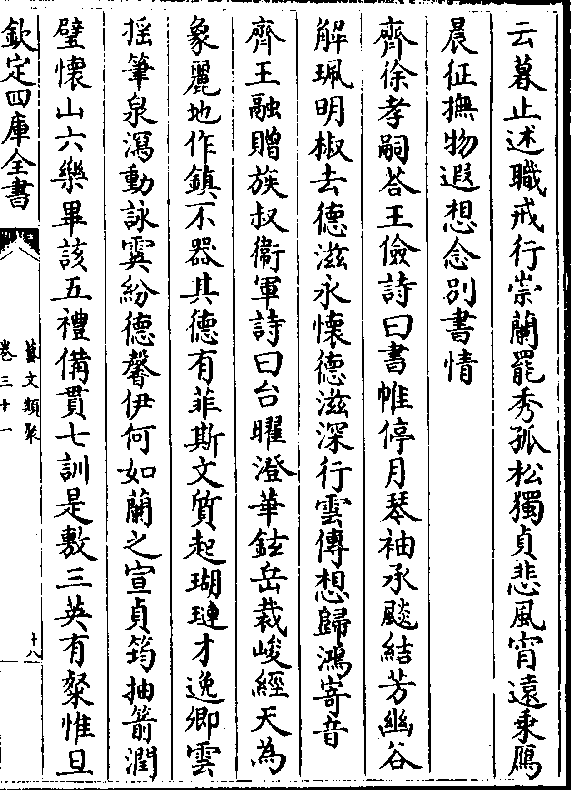 云暮止述職戒行崇蘭罷秀孤松獨貞悲風宵遠乘鴈
晨征撫物遐想念別書情
齊徐孝嗣荅王儉詩曰書帷停月琴袖承飈結芳幽谷
解珮明椒去德滋永懷德滋深行雲傳想歸鴻寄音
齊王融贈族叔衞軍詩曰台曜澄華鉉岳裁峻經天為
象麗地作鎮不器其德有菲斯文質起瑚璉才逸卿雲
揺筆泉瀉動詠霙紛德馨伊何如蘭之宣貞筠抽箭潤
璧懷山六樂畢該五禮備貫七訓是敷三英有粲惟旦
欽定四庫全書
藝文類聚
卷三十一
十八